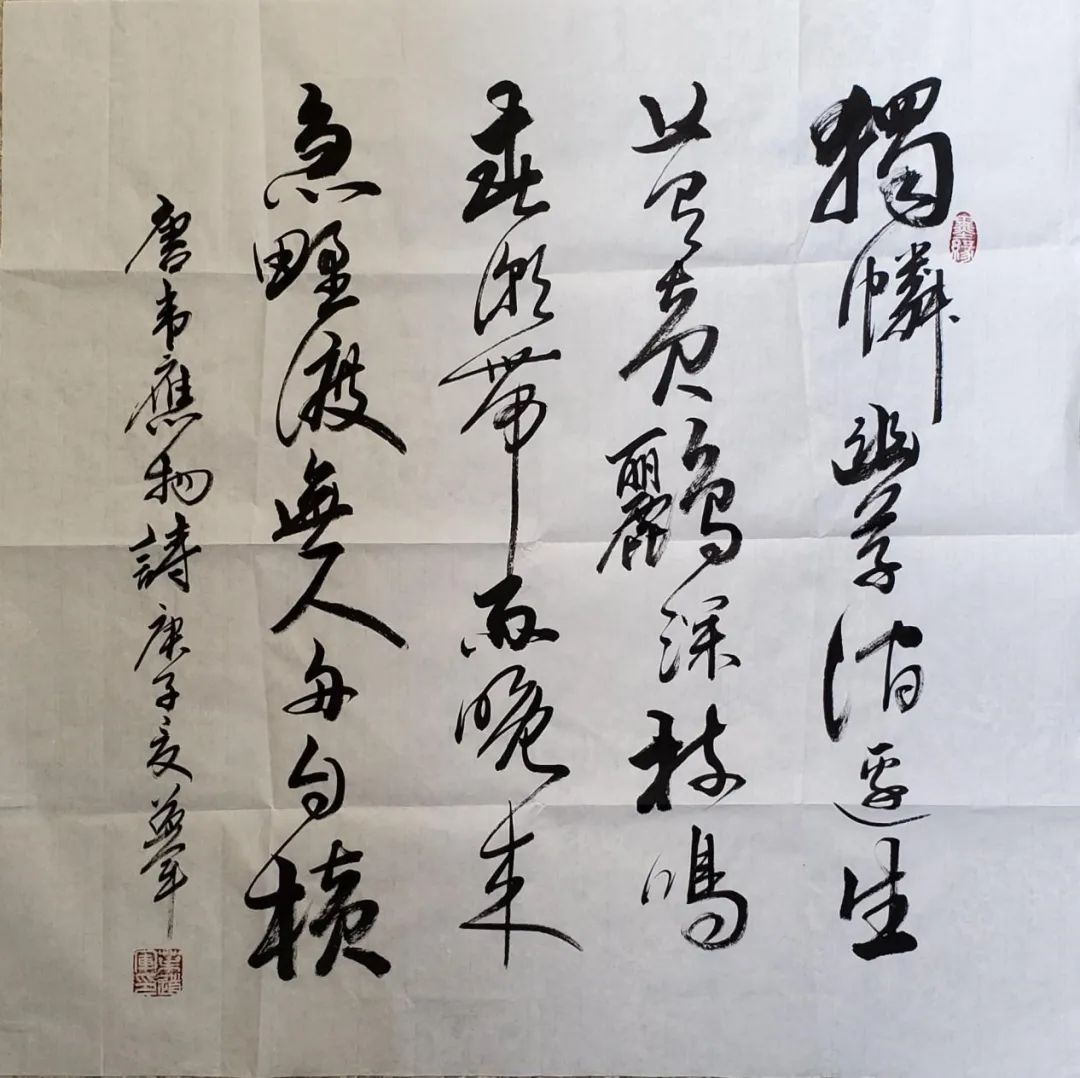 墨緣
獨憐幽草澗邊生
上有黃鸝深樹鳴
春潮帶雨晚來
急野渡無人舟自橫
唐韋應物詩庚子夏